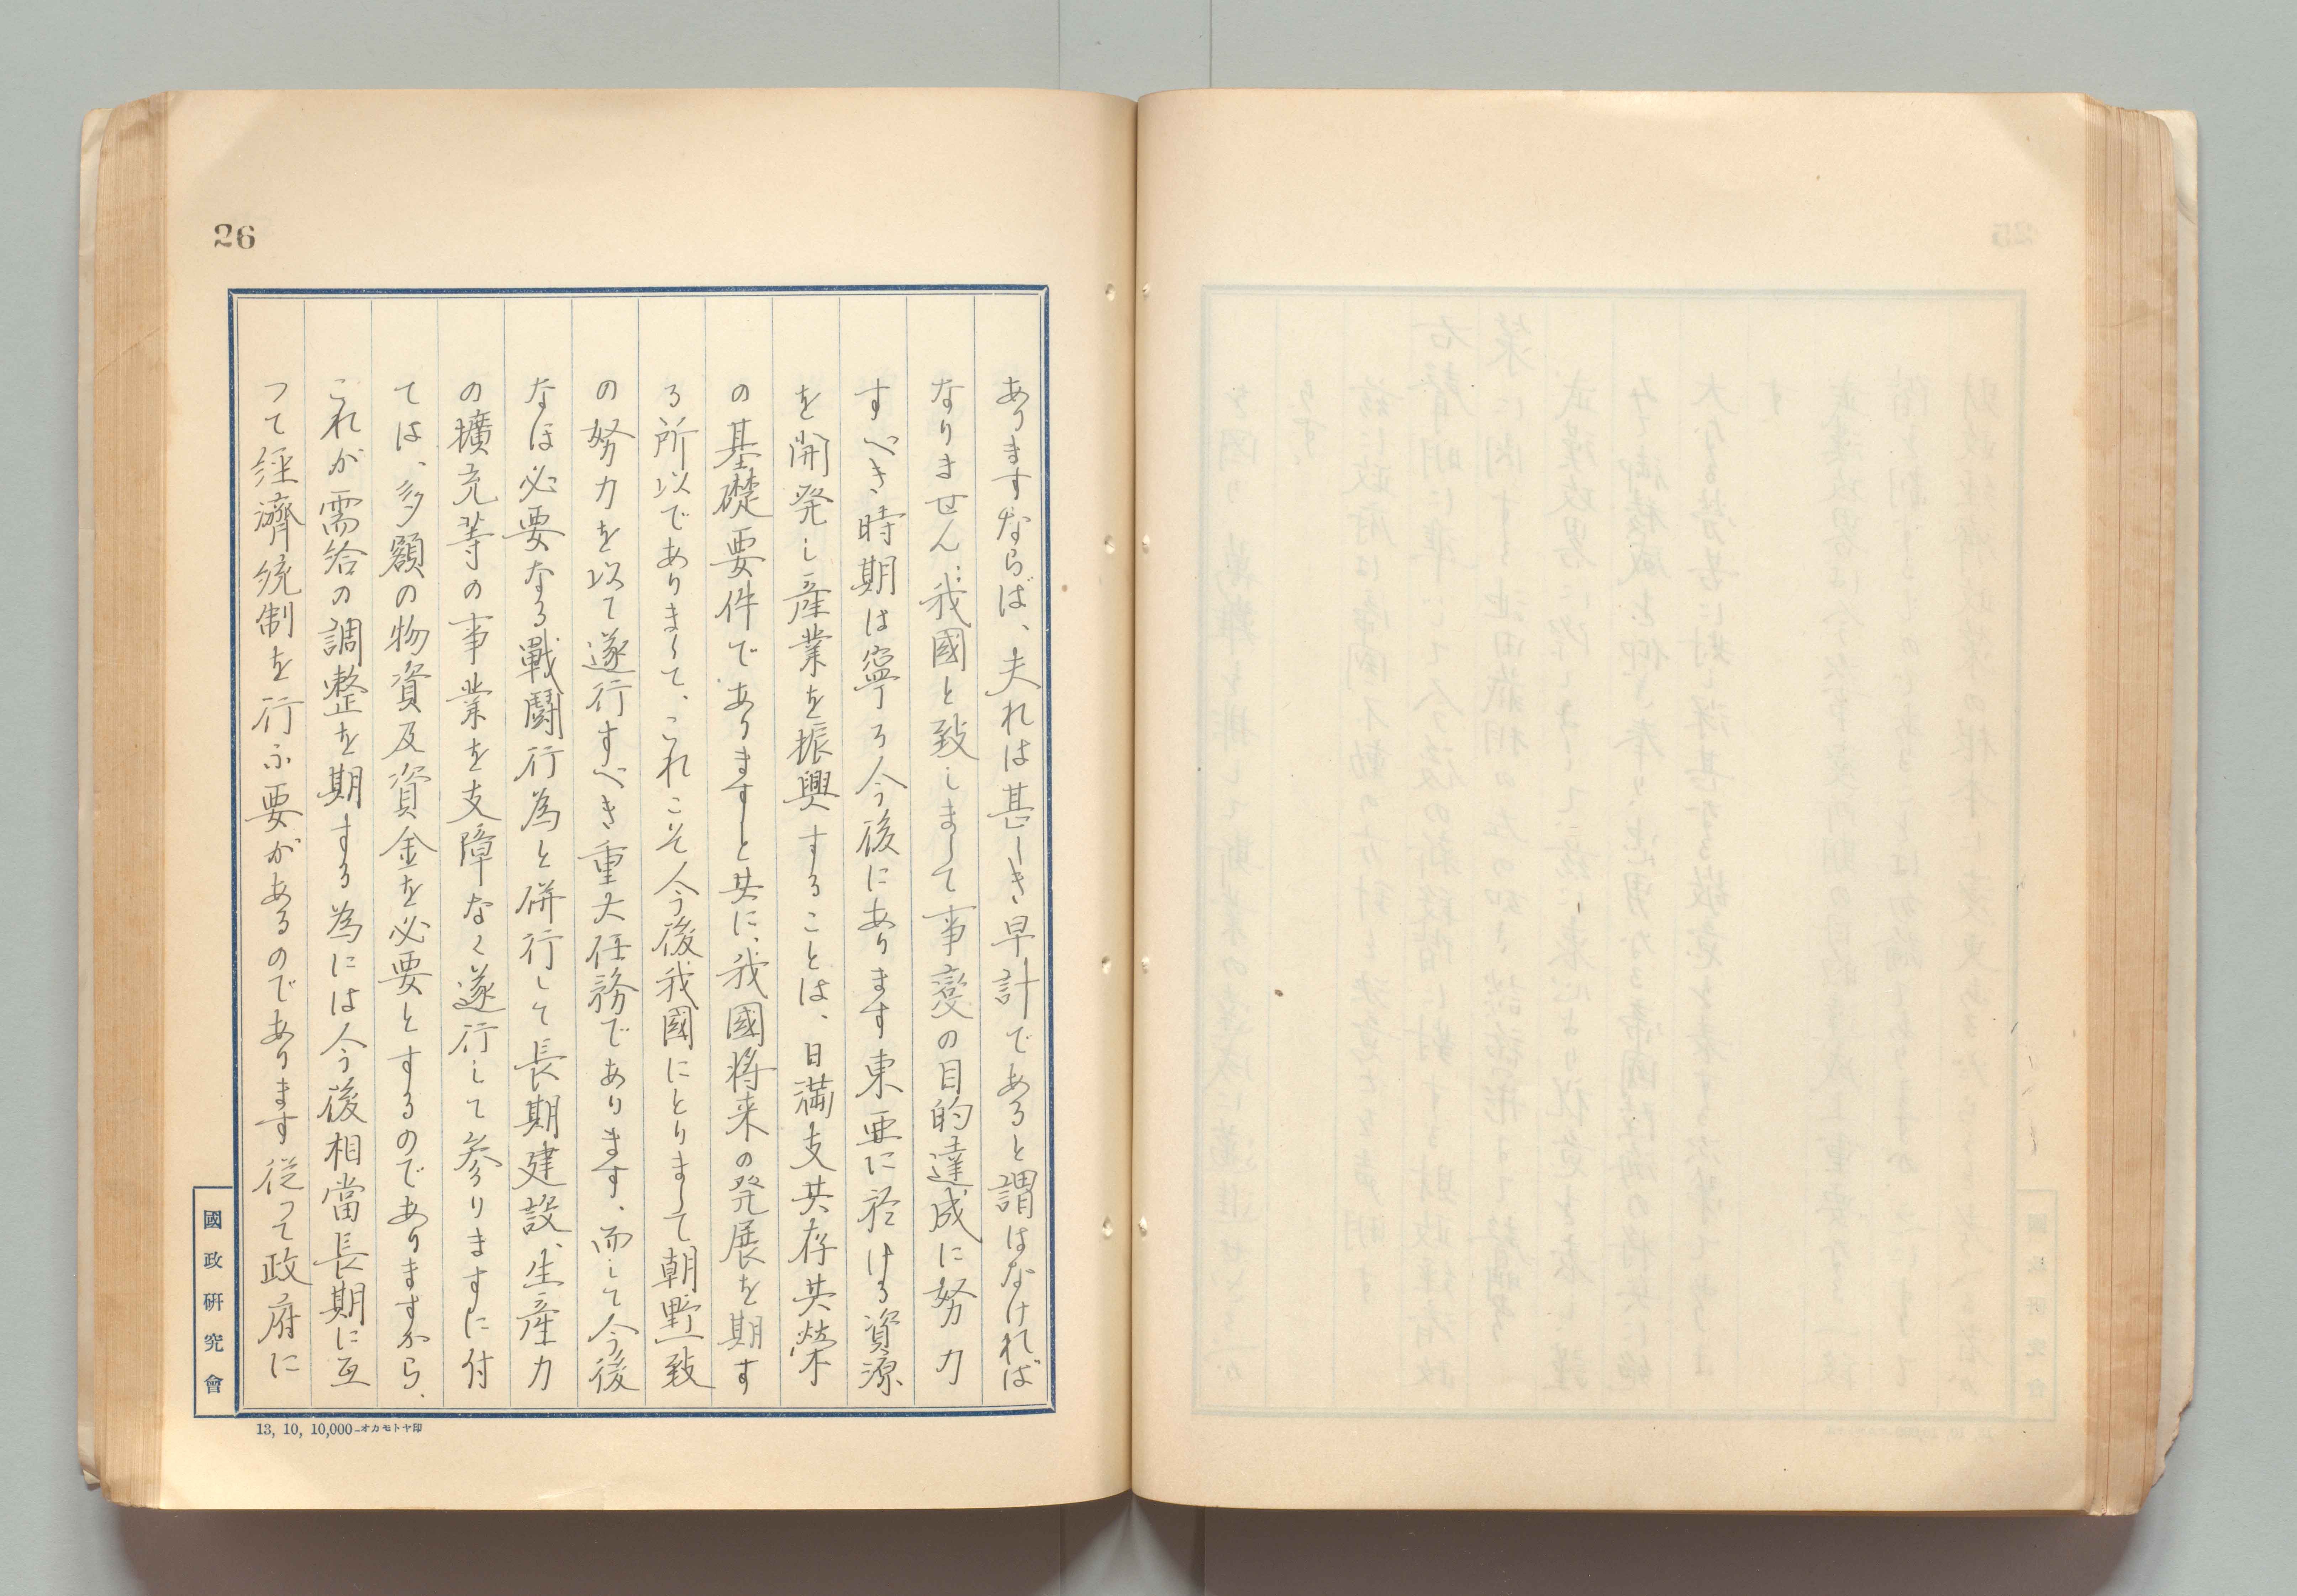 26
ありますならば、夫れは甚しき早計であると謂はなければ
なりません、我國と致しまして事変の目的達成に努力
すべき時期は寧ろ今後にあります東亜に於ける資源
を開発し産業を振興することは、日満支共存共栄
の基礎要件でありますと共に、我國将来の発展を期す
る所以でありまして、これこそ今後我國にとりまして朝野一致
の努力を以て遂行すべき重大任務であります、而して今後
なほ必要なる戰鬪行為と併行して長期建設、生産力
の擴充等の事業を支障なく遂行して参りますに付
ては、多額の物資及資金を必要とするのでありますから、
これが需給の調整を期する為には今後相當長期に亙
つて経濟統制を行ふ要があるのであります従つて政府に
國政研究會
13, 10, 10,000–オカモトヤ印